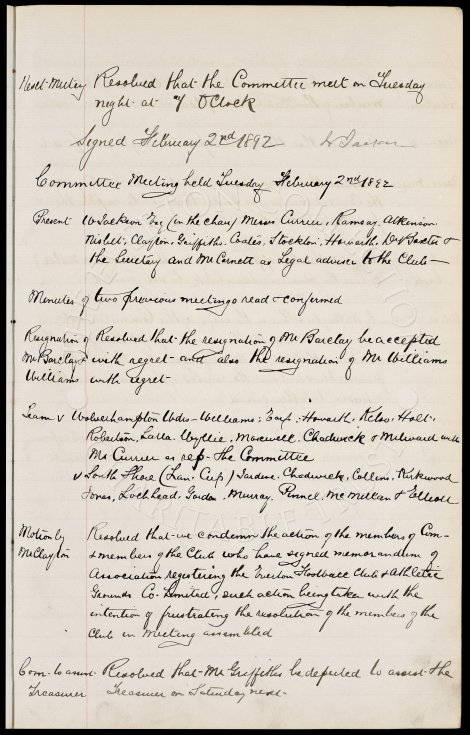 Next Meeting Resolved that the Committee meet on Tuesday
night at 7 O'Clock
Signed February 2nd 1892 W Jackson
Committee Meeting held Tuesday February 2nd 1892
Present W Jackson Esq (in the chair) Messrs Currier, Ramsay, Atkinson
Nisbet, Clayton, Griffiths, Coates, Stockton, Howarth, Dr Baxter &
the Secretary and Mr Cornett as Legal adviser to the Club
Minutes of two previous meetings read & confirmed
Resignation of Resolved that the resignation of Mr Barclay be accepted
Mr Barclay & with regret and also the resignation of Mr Williams
Williams with regret
Team v Wolverhampton Wdrs Williams: Earp: Howarth, Kelso: Holt:
Robertson, Latta. Wyllie, Maxwell, Chadwick & Milward with
Mr Currier as rep: the Committee
v South Shore (Lan: Cup) Jardine, Chadwick, Collins, Kirkwood
Jones, Lochhead, Gordon, Murray, Pinnel, McMillan & Elliott
Motion by Resolved that we condemn the action of the members of Com-
Mr Clayton & members of the Club who have signed memorandum of
Association registering the Everton Football Club & Athletic
Grounds Co Limited, such action being taken with the
intention of frustrating the resolution of the members of the
Club in Meeting assembled
Com. to assist Resolved that Mr Griffiths be deputed to assist the
Treasurer Treasurer on Saturday next